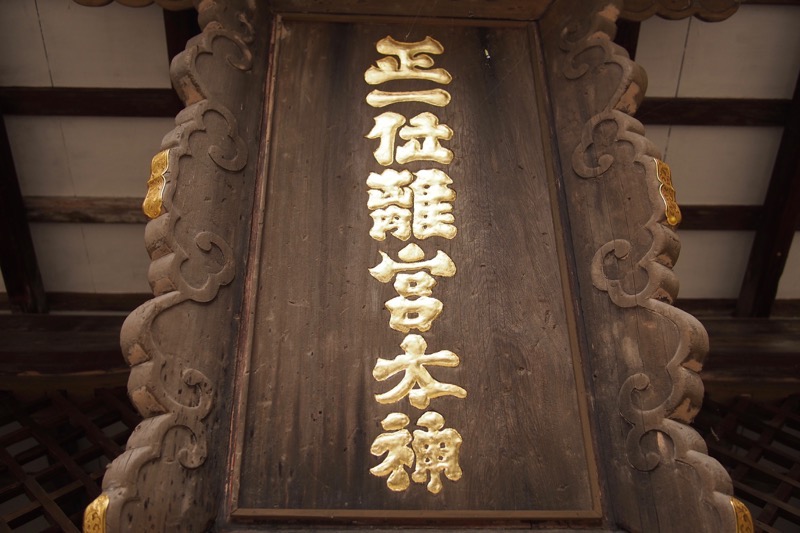 正一位離宮大神